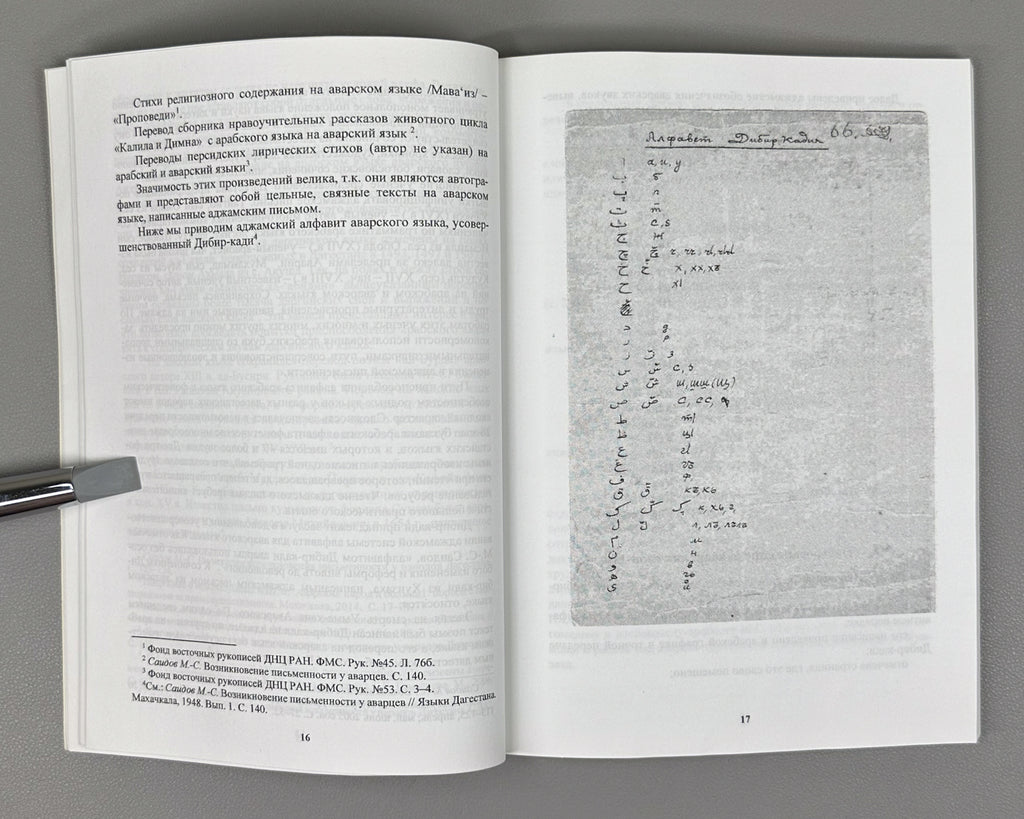 Стихи религиозного содержания на аварском языке /Мава‘из/ –
«Проповеди»¹.
Перевод сборника нравоучительных рассказов животного цикла
«Калила и Димна» с арабского языка на аварский язык ².
Переводы персидских лирических стихов (автор не указан) на
арабский и аварский языки³.
Значимость этих произведений велика, т.к. они являются автогра-
фами и представляют собой цельные, связные тексты на аварском
языке, написанные аджамским письмом.
Ниже мы приводим аджамский алфавит аварского языка, усовер-
шенствованный Дибир-кади⁴.
¹ Фонд восточных рукописей ДНЦ РАН. ФМС. Рук. №45. Л. 76б.
² Саидов М.-С. Возникновение письменности у аварцев. С. 140.
³ Фонд восточных рукописей ДНЦ РАН. ФМС. Рук. №53. С. 3–4.
⁴См.: Саидов М.-С. Возникновение письменности у аварцев // Языки Дагестана.
Махачкала, 1948. Вып. 1. С. 140.
16
Алфавет Дибир-Кадия 66,
а, и, у
б
п
т
с, s
ж
х, хх, хъ
хI
д
р
з
с, з
ш, шш (щ)
с, сс,
тI
цI
гI
гъ
ф
къ, кь
к, хь, г,
л, лъ, лълъ
м
н
в
17